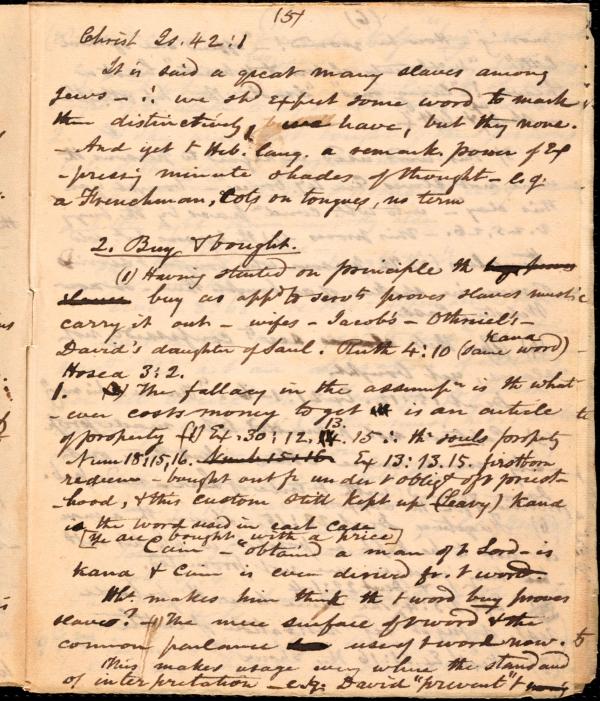 (5)
Christ Is. 42:1
It is said a great many slaves among
Jews - ∴ we shd expect some word to mark
them distinctively, we have, but they none.
- And yet t Heb. lang. a remark. power of Ex
-pressing minute shades of thought - e.g.
a Frenchman, Cots on tongues, no term
2. Buy & bought.
(1) Having started on principle th
slaves buy as appd to servts proves slaves must
carry it out - wifes - Jacob's - Othniel's -
David's daughter of Saul. Ruth 4:10 (same word) Kana -
Hosea 3:2.
1. The fallacy in the assumpn is th what
-ever costs money to get is an article
of property (1) Ex. 30:12, 13. 15 ∴ th souls property
Num 18:15,16. Numb 15+16 Ex 13:13.15. firstborn
redeem - bought out fr under t obligt of t priest-
-hood, & this custom still kept up (Leavy) Kana
is the word used in each case
[Ye are bought with a price]
Cain - "obtained a man of t Lord - is
Kana & Cain is even derived fr. t word.
Wht makes him think th t word buy proves
slaves? - The mere surface of t word & the
common parlance use of t word now.
This makes usage every where the standard
of interpretation - e.g. David "prevent" t